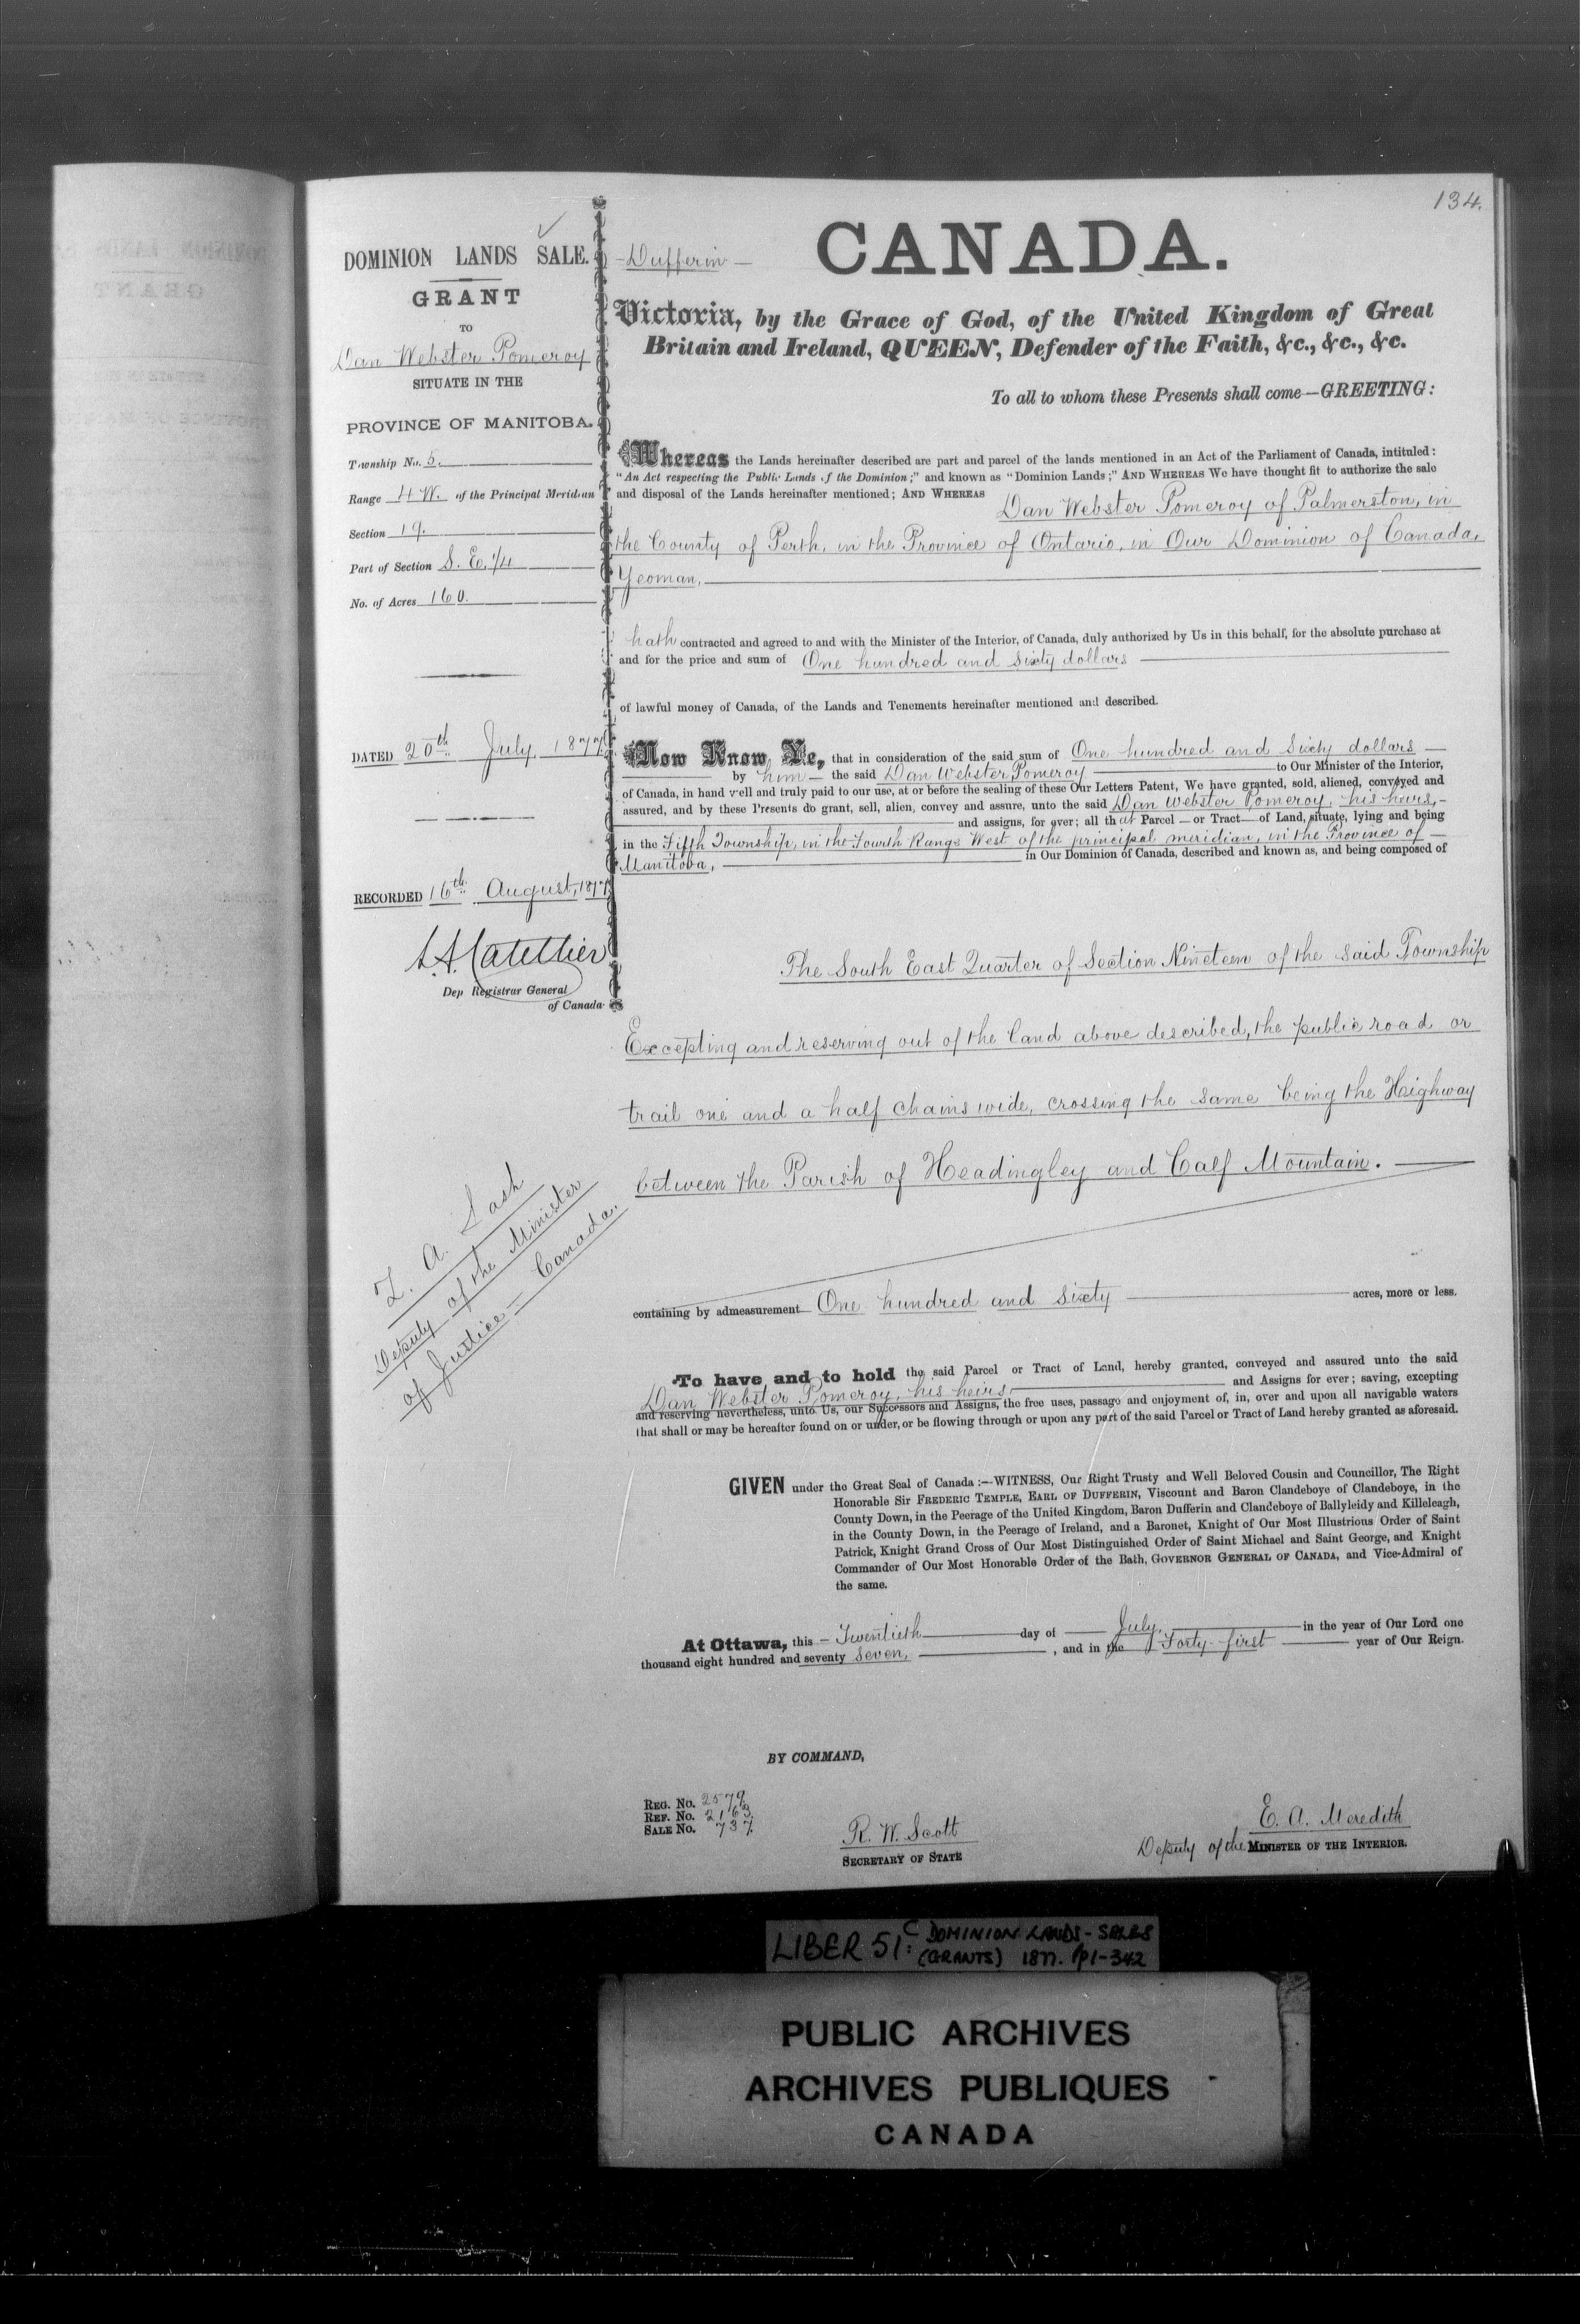 134.
DOMINION LANDS SALE.
GRANT
TO
Dan Webster Pomeroy
SITUATE IN THE
PROVINCE OF MANITOBA.
Township No. 5.
Range 4 W. of the Principal Meridian
Section 19.
Part of Section S. E. 1/4
No. of Acres 160.
DATED 20th July 1877
RECORDED 16th August, 1877
Dep Registrar General
of Canada
Z. A. Lash
Deputy of the Minister
of Justice = Canada.
- Dufferin - CANADA.
Victoria, by the Grace of God, of the United Kingdom of Great
Britain and Ireland, QUEEN, Defender of the Faith, &c., &c., &c.
To all to whom these Presents shall come—GREETING:
Whereas the Lands hereinafter described are part and parcel of the lands mentioned in an Act of the Parliament of Canada, intituled:
"An Act respecting the Public Lands of the Dominion;" and known as "Dominion Lands;" AND WHEREAS We have thought fit to authorize the sale
and disposal of the Lands hereinafter mentioned; AND WHEREAS
Dan Webster Pomeroy of Palmerston, in
the County of Perth, in the Province of Ontario, in Our Dominion of Canada,
Yeoman,
hath contracted and agreed to and with the Minister of the Interior, of Canada, duly authorized by Us in this behalf, for the absolute purchase at
and for the price and sum of One hundred and sixty dollars
of lawful money of Canada, of the Lands and Tenements hereinafter mentioned and described.
Now Know Ye, that in consideration of the said sum of One hundred and sixty dollars
by him the said Dan Webster Pomeroy to Our Minister of the Interior,
of Canada, in hand well and truly paid to our use, at or before the sealing of these Our Letters Patent, We have granted, sold, aliened, conveyed and
assured, and by these Presents do grant, sell, alien, convey and assure, unto the said Dan Webster Pomeroy, his heirs,
and assigns, for ever; all that Parcel or Tract of Land, situate, lying and being
in the Fifth Township, in the Fourth Range West of the principal meridian, in the Province of
Manitoba, in Our Dominion of Canada, described and known as, and being composed of
The South East Quarter of Section Nineteen of the said Township
Excepting and reserving out of the land above described, the public road or
trail one and a half chains wide, crossing the same being the Highway
between the Parish of Headingley and Calf Mountain.
containing by admeasurement One hundred and sixty acres, more or less.
To have and to hold the said Parcel or Tract of Land, hereby granted, conveyed and assured unto the said
Dan Webster Pomeroy, his heirs, and Assigns for ever; saving, excepting
and reserving nevertheless, unto Us, our Successors and Assigns, the free uses, passage and enjoyment of, in, over and upon all navigable waters
that shall or may be hereafter found on or under, or be flowing through or upon any part of the said Parcel or Tract of Land hereby granted as aforesaid.
GIVEN under the Great Seal of Canada:—WITNESS, Our Right Trusty and Well Beloved Cousin and Councillor, The Right
Honorable Sir FREDERIC TEMPLE, EARL OF DUFFERIN, Viscount and Baron Clandeboye of Clandeboye, in the
County Down, in the Peerage of the United Kingdom, Baron Dufferin and Clandeboye of Ballyleidy and Killeleagh,
in the County Down, in the Peerage of Ireland, and a Baronet, Knight of Our Most Illustrious Order of Saint
Patrick, Knight Grand Cross of Our Most Distinguished Order of Saint Michael and Saint George, and Knight
Commander of Our Most Honorable Order of the Bath, GOVERNOR GENERAL OF CANADA, and Vice-Admiral of
the same.
At Ottawa, this Twentieth day of July, in the year of Our Lord one
thousand eight hundred and seventy seven, , and in the Forty-first year of Our Reign.
BY COMMAND,
REG. No. 2579.
REF. No. 2163.
SALE No. 737.
R. W. Scott
SECRETARY OF STATE
E. A. Meredith
Deputy of the MINISTER OF THE INTERIOR.
LIBER 51C: DOMINION LANDS - SALES
(GRANTS) 1877. pp 1-342
PUBLIC ARCHIVES
ARCHIVES PUBLIQUES
CANADA